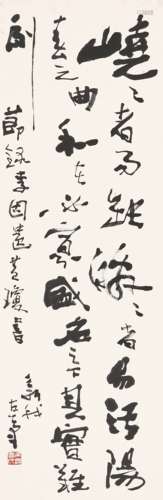 嶢々者易缺皦々者易汙陽
春之曲和者必寡盛名之下其實難
副
節錄李固遺黃瓊書